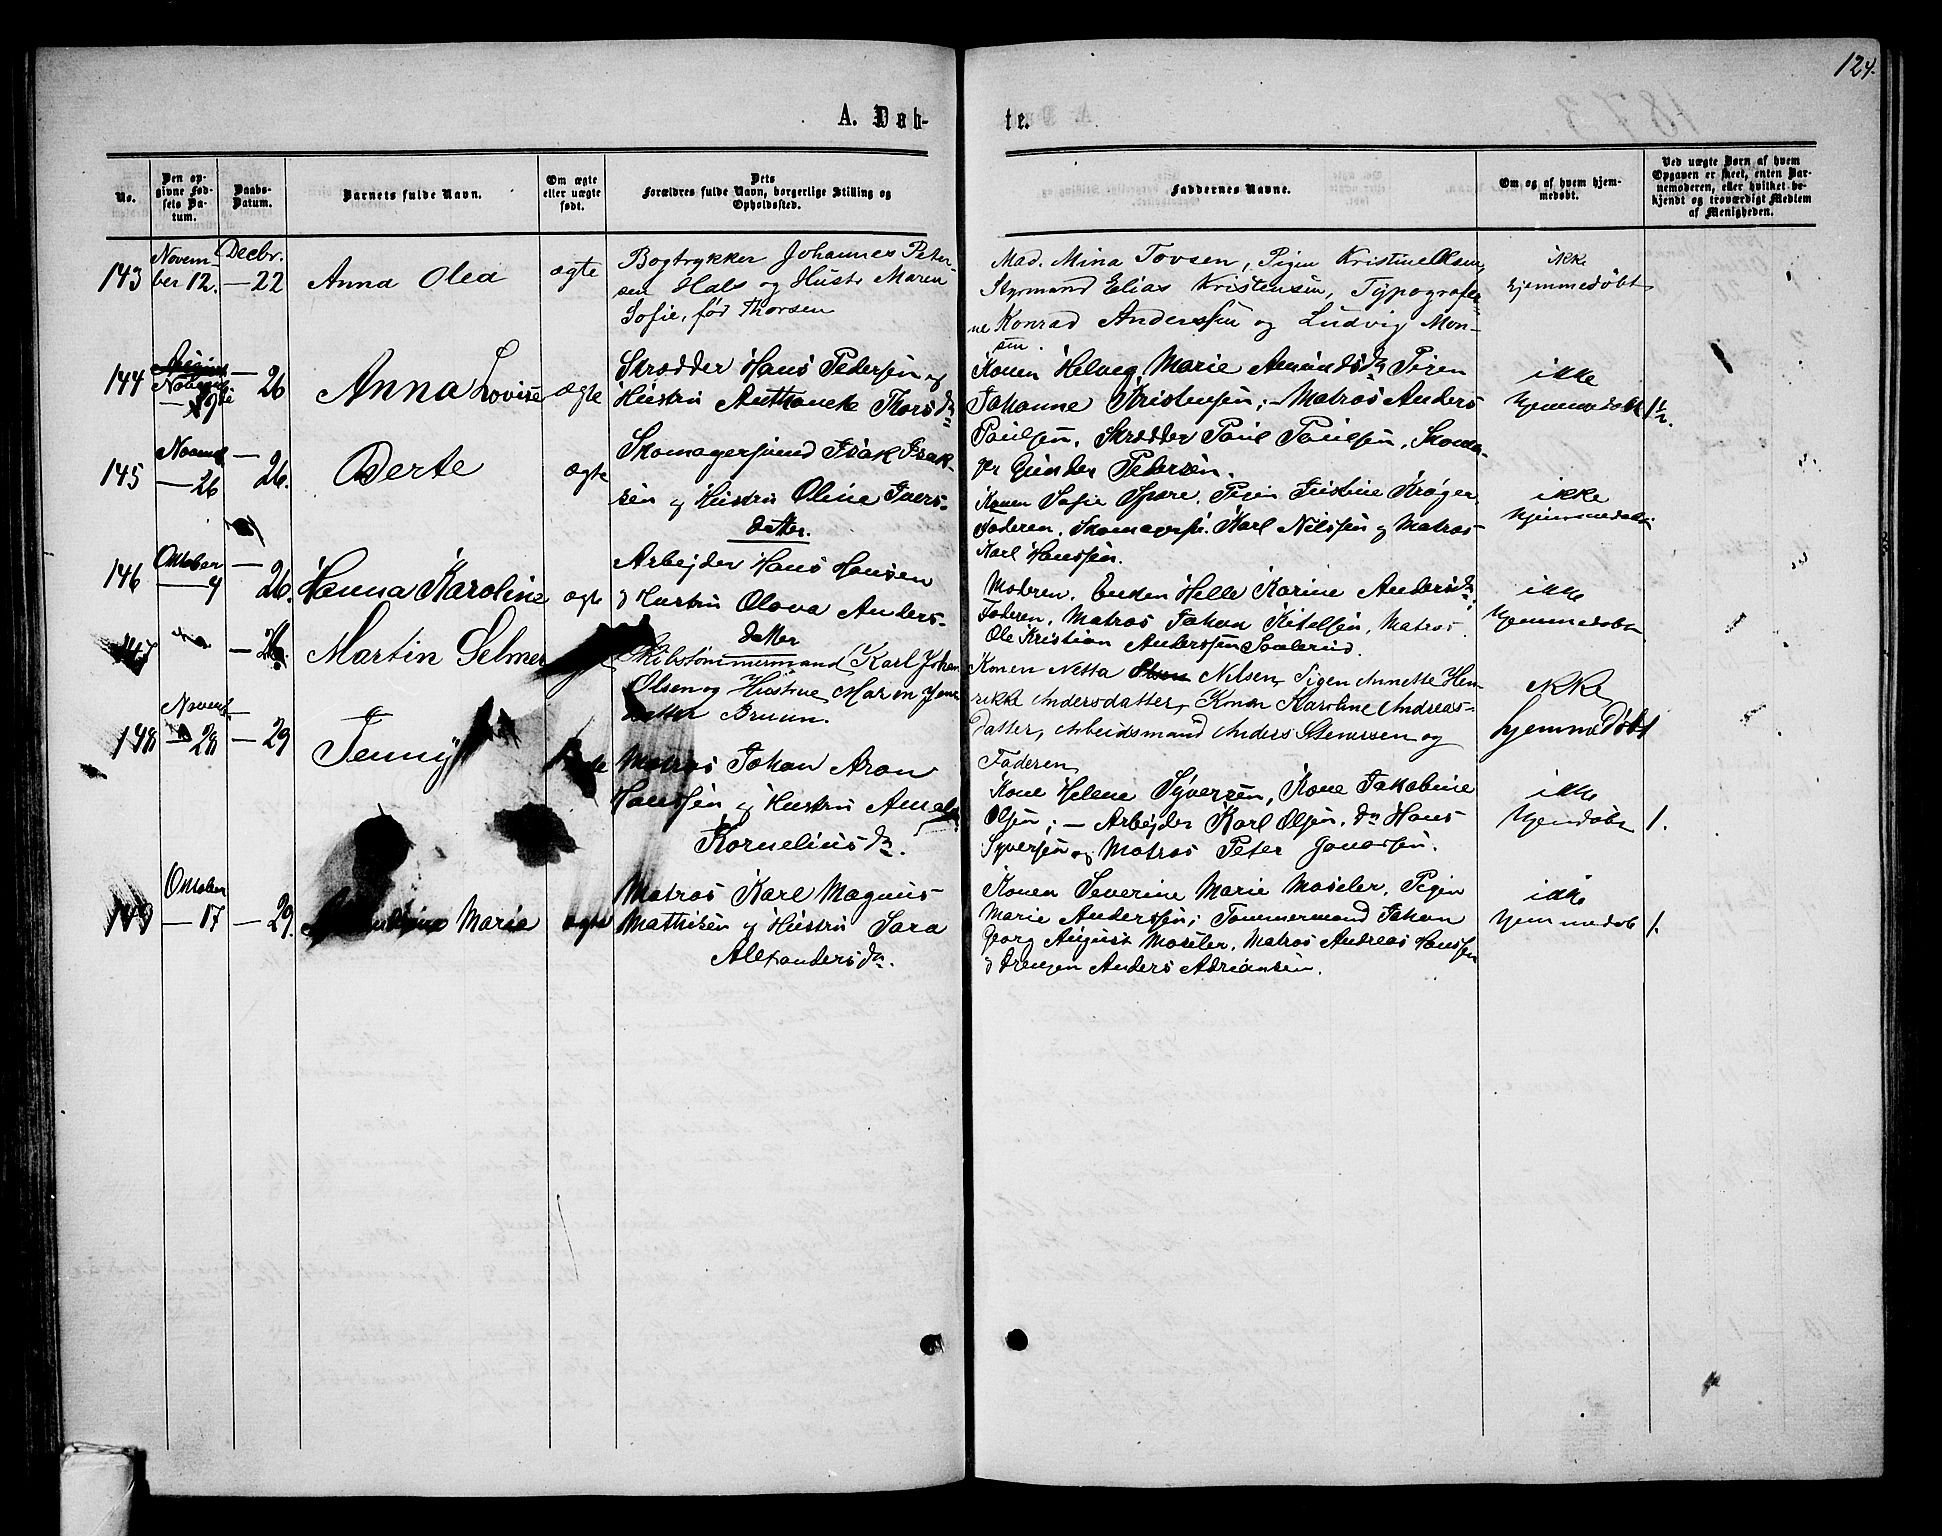 124.
A. Døb-
te.
No.
Den op-
givne Fød-
sels Da-
tum.
Daabs-
Datum.
Barnets fulde Navn.
Om ægte
eller uægte
født.
Dets
Forældres fulde Navn, borgerlige Stilling og
Opholdssted.
Faddernes Navne.
Om og af hvem hjem-
medøbt.
Ved uægte Børn af hvem
Opgaven er skeet, enten Bar-
nemoderen, eller hvilket be-
kjendt og troværdigt Medlem
af Menigheden.
143
Novem-
ber 12.
Decbr.
— 22
Anna Olea
ægte
Bogtrykker Johannes Peter-
sen Hals og Hustr Maren
Sofie, fød Thorsen
Mad. Mina Tovsen, Pigen Kristine Olsen,
Styrmand Elias Kristensen, Typografer-
ne Konrad Anderssen og Ludvig Mon-
sen.
ikke
hjemmedøbt
144
— 9
— 26
Anna Lovise
ægte
Skrædder Hans Pedersen og
Hustru Anthoneke Thorsdr
Konen Helveg Marie Amundsdr Pigen
Johanne Kristensen; — Matros Anders
Paulsen, Skrædder Paul Paulsen, Skoma-
ger Gunder Pedersen.
ikke
hjemmedøbt
1½.
145
Novemb
— 26
— 26.
Berte
ægte
Skomagersvend Isak Isak-
sen og Hustru Oline Ivers-
datter.
Konen Sofie Spare, Pigen Justine Krøger
Faderen, Skomagersv. Karl Nilssen og Matros
Karl Hanssen.
ikke
hjemmedøbt
146
Oktober
— 4
— 26.
Hanna Karoline
ægte
Arbejder Hans Hansen
og Hustru Olava Anders-
datter
Moderen, Enken Helle Karine Andersdr;
Faderen, Matros Johan Kitelsen, Matros
Ole Kristian Anderssen
ikke
hjemmedøbt
147
— 26.
Martin Selmer
Skibstømmermand Karl Johan
Olsen og Hustrue Maren Jens-
datter Bruun.
Konen Netta Nilsen, Pigen Annette Hen-
rikke Andersdatter, Konen Karoline Andreas-
datter, Arbeidsmand Anders Stensen og
Faderen
ikke
hjemmedøbt
148
Novemb.
— 28
— 29
Jenny
Matros Johan Aron
Hanssen og Hustru
Korneliusdr.
Kone Helene Syversen, Kone Jakobine
Olsen; — Arbejder Karl Olsen, do Hans
Syversen og Matros Peter Jonassen.
ikke
hjemdøbt
1.
149
Oktober
— 17
— 29.
Marie
ægte
Matros Karl Magnus
Mathisen og Hustru Sara
Alexandersdr.
Konen Severine Marie Moseler, Pigen
Marie Anderssen; Tømmermand Johan
Georg August Moseler, Matros Andreas Hanssen
og Drengen Anders Adriansen.
ikke
hjemmedøb
1.